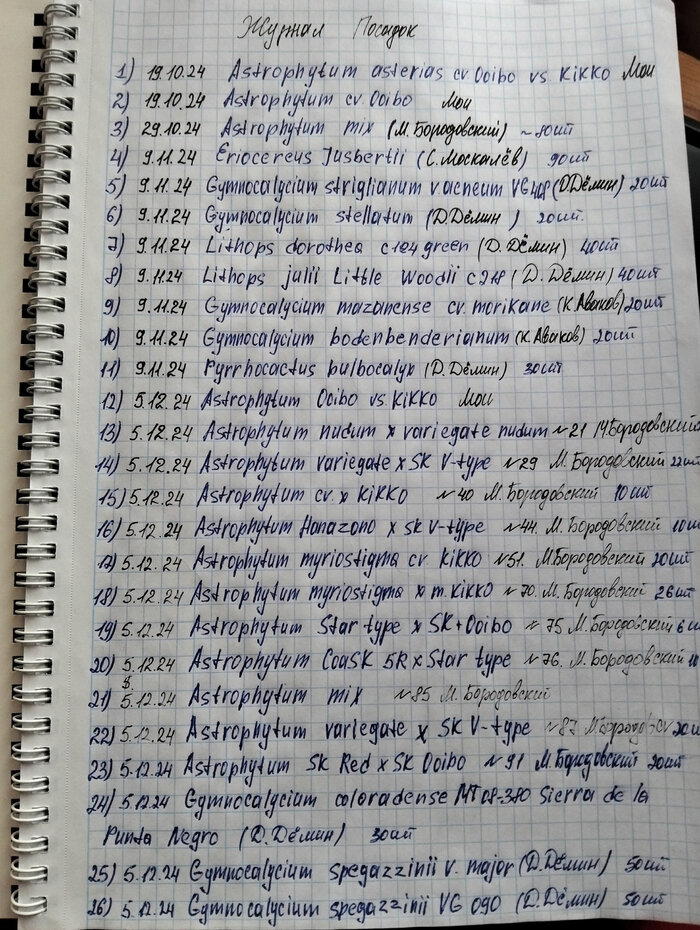 Журнал Посадок
1) 19.10.24 Astrophytum asterias cv Ooibo vs. Kikko Мои
2) 19.10.24 Astrophytum cv. Ooibo Мои
3) 29.10.24 Astrophytum mix (М. Бородовский) ~80шт
4) 9.11.24 Eriocereus Jusbertii (С. Москалёв) 90шт
5) 9.11.24 Gymnocalycium striglianum v aeneum VG408 (Д.Дёмин) 20шт
6) 9.11.24 Gymnocalycium stellatum (Д.Дёмин) 20шт.
7) 9.11.24 Lithops dorothea c124 green (Д. Дёмин) 40шт
8) 9.11.24 Lithops julii Little Woodii c218 (Д. Дёмин) 40шт
9) 9.11.24 Gymnocalycium mazanense cv. morikane (К.Аваков) 20шт
10) 9.11.24 Gymnocalycium bodenbenderianum (К.Аваков) 20шт
11) 9.11.24 Pyrrhocactus bulbocalyx (Д.Дёмин) 30шт
12) 5.12.24 Astrophytum Ooibo vs. Kikko Мои
13) 5.12.24 Astrophytum nudum x variegate nudum ~21 М.Бородовский
14) 5.12.24 Astrophytum variegate x SK V-type ~29 М. Бородовский 22шт
15) 5.12.24 Astrophytum cv. x Kikko ~40 М. Бородовский 10шт
16) 5.12.24 Astrophytum Hanazono x SK V-type ~44. М. Бородовский 10ш
17) 5.12.24 Astrophytum myriostigma cv. Kikko ~51. М.Бородовский 20шт
18) 5.12.24 Astrophytum myriostigma x m. Kikko ~70. М. Бородовский 26шт
19) 5.12.24 Astrophytum Star type x SK+Ooibo ~75 М. Бородовский 6 ш
20) 5.12.24 Astrophytum CoaSK 5R x Star type ~76. М. Бородовский
21) 5.12.24 Astrophytum mix ~85 М. Бородовский
22) 5.12.24 Astrophytum variegate x SK V-type ~87 20ш
23) 5.12.24 Astrophytum SK Red x SK Ooibo ~91 М. Бородовский 20шт
24) 5.12.24 Gymnocalycium coloradense MT08-380 Sierra de la
Punta Negro (Д.Дёмин) 30шт
25) 5.12.24 Gymnocalycium spegazzinii v. major (Д.Дёмин) 50шт
26) 5.12.24 Gymnocalycium spegazzinii VG 090 (Д. Дёмин) 50шт